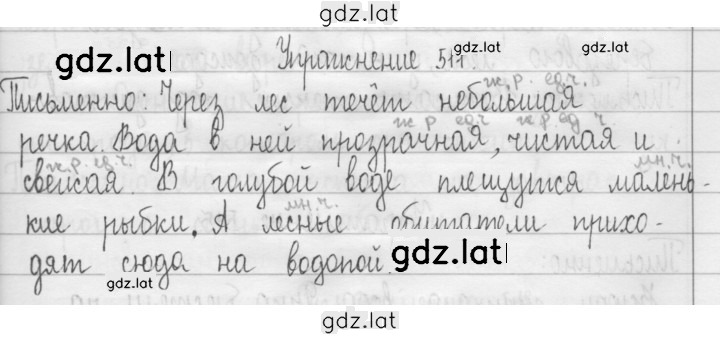 gdz.lat
gdz.lat Упражнение 517. gdz.lat
ж.р. ед.ч.
Письменно: Через лес течёт небольшая
ж.р. ед.ч. ж.р. ед.ч.
речка. Вода в ней прозрачная, чистая и
ж.р. ед.ч. мн.ч.
свежая. В голубой воде плещутся малень-
мн.ч.
кие рыбки. А лесные обитатели прихо-
дят сюда на водопой. gdz.lat
gdz.lat
gdz.lat